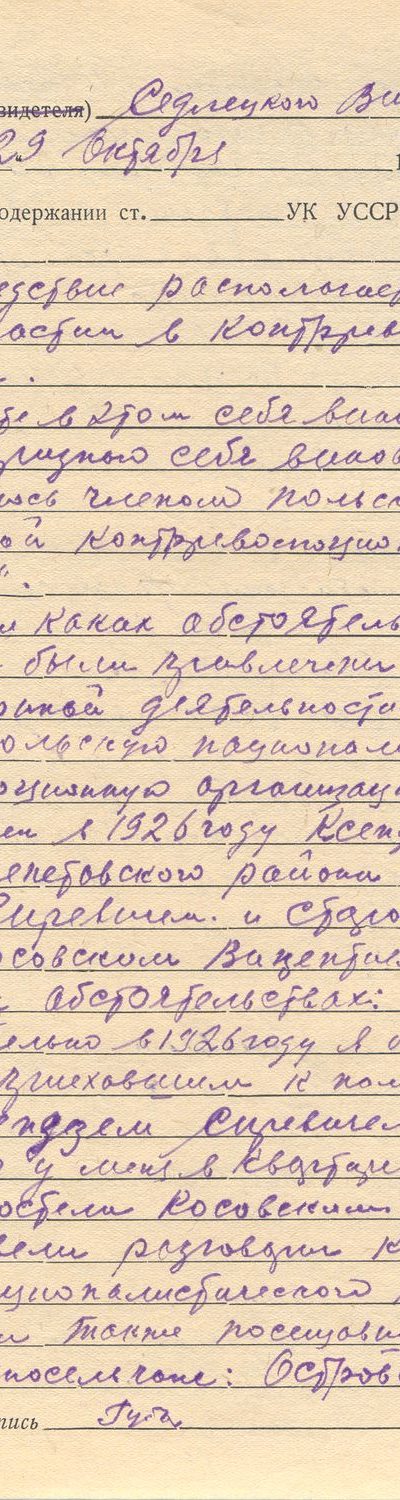 видетеля) Седлецкого Ви
29 Октября 1
одержании ст. УК УССР
едствие распологает
астии в контррев
те в этом себя вино
ризнаю себя винов
юсь членом польс
ой контрреволюцио
".
и каких обстоятель
были привлечени
рной деятельности
ольскую национал
юционную организац
ен в 1926 году Ксенд
епетовского района
Сиревичем. и стало
осовским Викентие
обстоятельствах:
ельно в 1926 году я
приехавшим к нам
ендзем Сиревиче
у меня в квартире
остели Косовским
вели разговори к
ционалистического
и также посещав
посельчане: Остров
пись